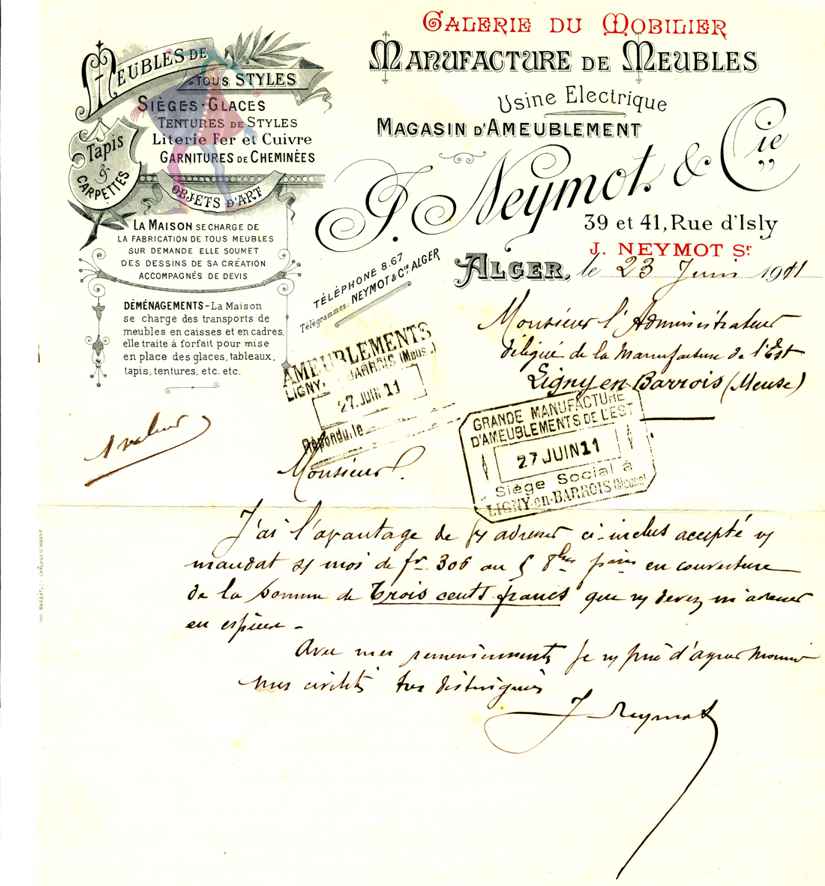 GALERIE DU MOBILIER
MANUFACTURE DE MEUBLES
Usine Electrique
MAGASIN D'AMEUBLEMENT
J. Neymot. & Cie
39 et 41, Rue d'Isly
J. NEYMOT Sr
ALGER, le 23 Juin 1911
MEUBLES DE
TOUS STYLES
SIÈGES-GLACES
TENTURES DE STYLES
Literie Fer et Cuivre
GARNITURES DE CHEMINÉES
Tapis
&
CARPETTES
OBJETS D'ART
LA MAISON SE CHARGE DE
LA FABRICATION DE TOUS MEUBLES
SUR DEMANDE ELLE SOUMET
DES DESSINS DE SA CRÉATION
ACCOMPAGNÉS DE DEVIS
DÉMÉNAGEMENTS - La Maison
se charge des transports de
meubles en caisses et en cadres,
elle traite à forfait pour mise
en place des glaces, tableaux,
tapis, tentures, etc. etc.
TÉLÉPHONE 8.67
Télégrammes: NEYMOT & Cie ALGER
Monsieur l'Administrateur
délégué de la Manufacture de l'Est
Ligny en Barrois (Meuse)
AMEUBLEMENTS
LIGNY, BARROIS (Meuse)
27 JUIN 11
Répondu, le
GRANDE MANUFACTURE
D'AMEUBLEMENTS DE L'EST
27 JUIN 11
Siège Social à
LIGNY-en-BARROIS (Meuse)
Monsieur.
J'ai l'avantage de vs adresser ci-inclus accepté vs
mandat de fr 306 au 5 en couverture
de la somme de Trois cents francs que vs devez m'adresser
en espèces -
Avec mes remerciements je vs prie d'agréer Monsieur
mes civilités très distinguées
J Neymot